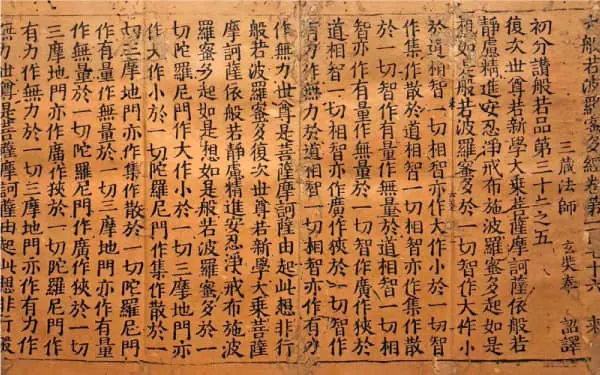 大般若波羅蜜多經卷第一百七十六 來
三藏法師 玄奘奉 詔譯
初分讚般若品第三十二之五
復次世尊若新學大乘菩薩摩訶薩依般若
靜慮精進安忍淨戒布施波羅蜜多起如是
想如是般若波羅蜜多於一切智作大作小
於道相智一切相智亦作大作小於一切智
作集作散於道相智一切相智亦作集作散
於一切智作有量作無量於道相智一切相
智亦作有量作無量於一切智作廣作狹於
道相智一切相智亦作廣作狹於一切智作
有力作無力於道相智一切相智亦作有力
作無力世尊是菩薩摩訶薩由起此想非行
般若波羅蜜多復次世尊若新學大乘菩薩
摩訶薩依般若靜慮精進安忍淨戒布施波
羅蜜多起如是想如是般若波羅蜜多於一
切陀羅尼門作大作小於一切三摩地門亦
作大作小於一切陀羅尼門作集作散於一
切三摩地門亦作集作散於一切陀羅尼門
作有量作無量於一切三摩地門亦作有量
作無量於一切陀羅尼門作廣作狹於一切
三摩地門亦作廣作狹於一切陀羅尼門作
有力作無力於一切三摩地門亦作有力作
無力世尊是菩薩摩訶薩由起此想非行般